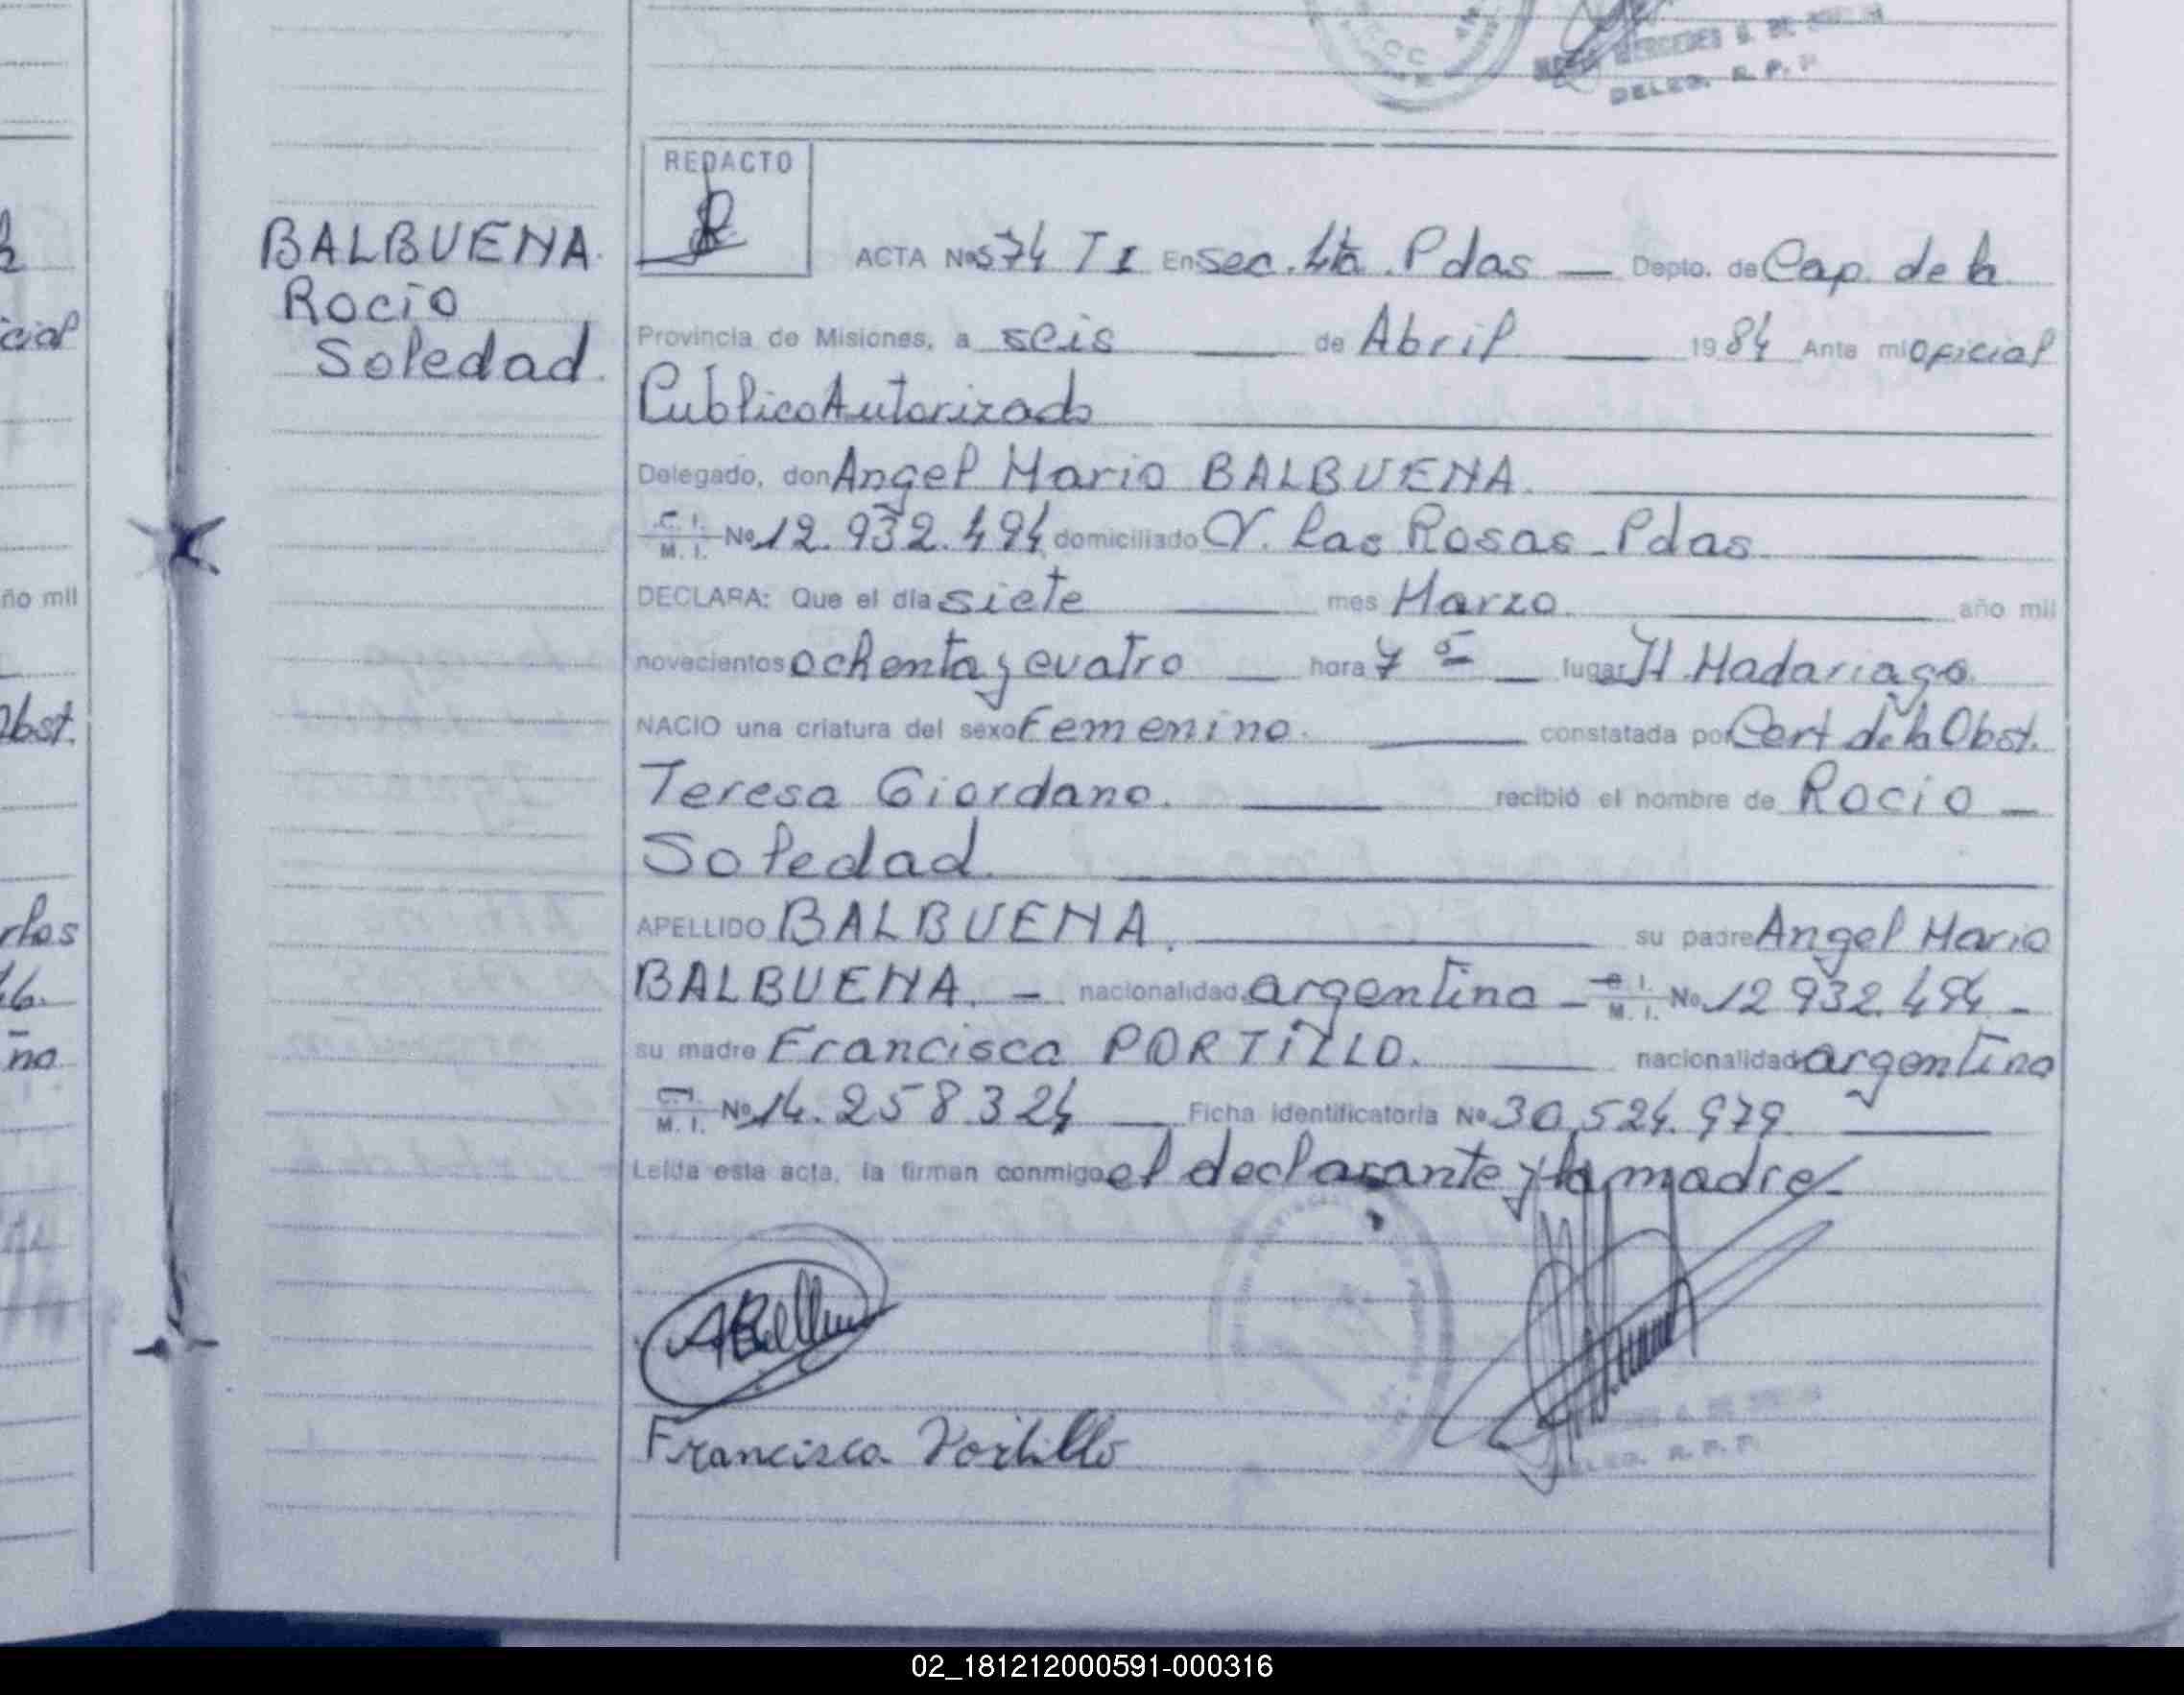 DELEG. R. P. P.
REDACTO
BALBUENA
Rocio
Soledad
ACTA Nº 574 T I En Sec. 4ta. Pdas — Depto. de Cap. de la
Provincia de Misiones, a seis — de Abril — 1984 Ante mi Oficial
Publico Autorizado
Delegado, don Angel Mario BALBUENA.
C. I. M. I. Nº 12.932.494 domiciliado V. Las Rosas - Pdas
DECLARA: Que el día siete — mes Marzo. — año mil
novecientos ochenta y cuatro — hora 7 — lugar H. Madariaga
NACIO una criatura del sexo Femenino. — constatada por Cert de la Obst.
Teresa Giordano. — recibió el nombre de Rocio —
Soledad.
APELLIDO BALBUENA. — su padre Angel Mario
BALBUENA. — nacionalidad argentina — C. I. M. I. Nº 12932.494 -
su madre Francisca PORTILLO. — nacionalidad argentina
C. I. M. I. Nº 14.258.324 — Ficha Identificatoria Nº 30.524.979 —
Leída esta acta, la firman conmigo el declarante y la madre.-
Francisca Portillo
02_181212000591-000316